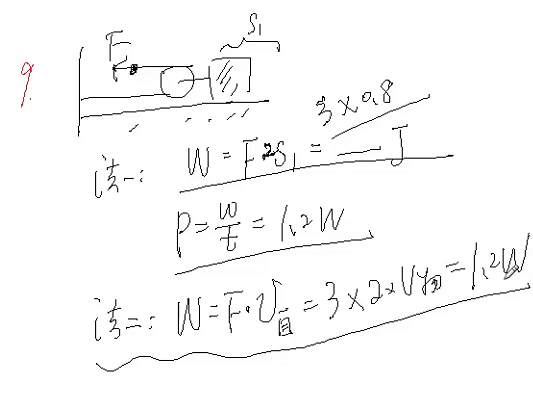 9.
F
S₁
法一: W = F·2S₁ = 3×0.8 J
P = W/t = 1.2W
法二: W = F·V自 = 3×2×V物 = 1.2W